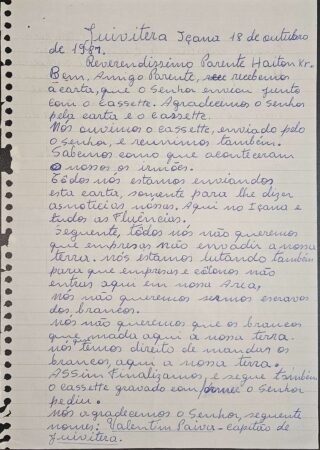 Juivitera Içana 18 de outubro
de 1987.
Reverendissimo Parente Hailton Kr.
Bem. Amigo Parente, recebemos
a carta, que o Senhor enviou junto
com o cassette. Agradecemos o Senhor
pela carta e o cassette.
Nós ouvimos o cassette, enviado pelo
o Senhor, e reunimos também.
Sabemos como que aconteceram
o nossos os irmãos.
Todos nós estamos enviandos
esta carta, somente para lhe dizer
as noticias nosses. Aqui no Içana e
tudos as Fluências.
Seguente, todos nós não queremos
que empresas não envadir a nossa
terra. nós estamos lutando também
para que empresas e colonos não
entras aqui em nossa Area,
nós não queremos sermos escravos
dos brancos.
nós não queremos que os brancos
que manda aqui a nossa terra.
nós temos direito de mandar os
brancos, aqui a nossa terra.
Assim Finalizamos, e segue também
o cassette gravado com o Senhor
pediu.
Nós agradecemos o Senhor, seguente
nomes: Valentim Paiva - capitão de
Juivitera.